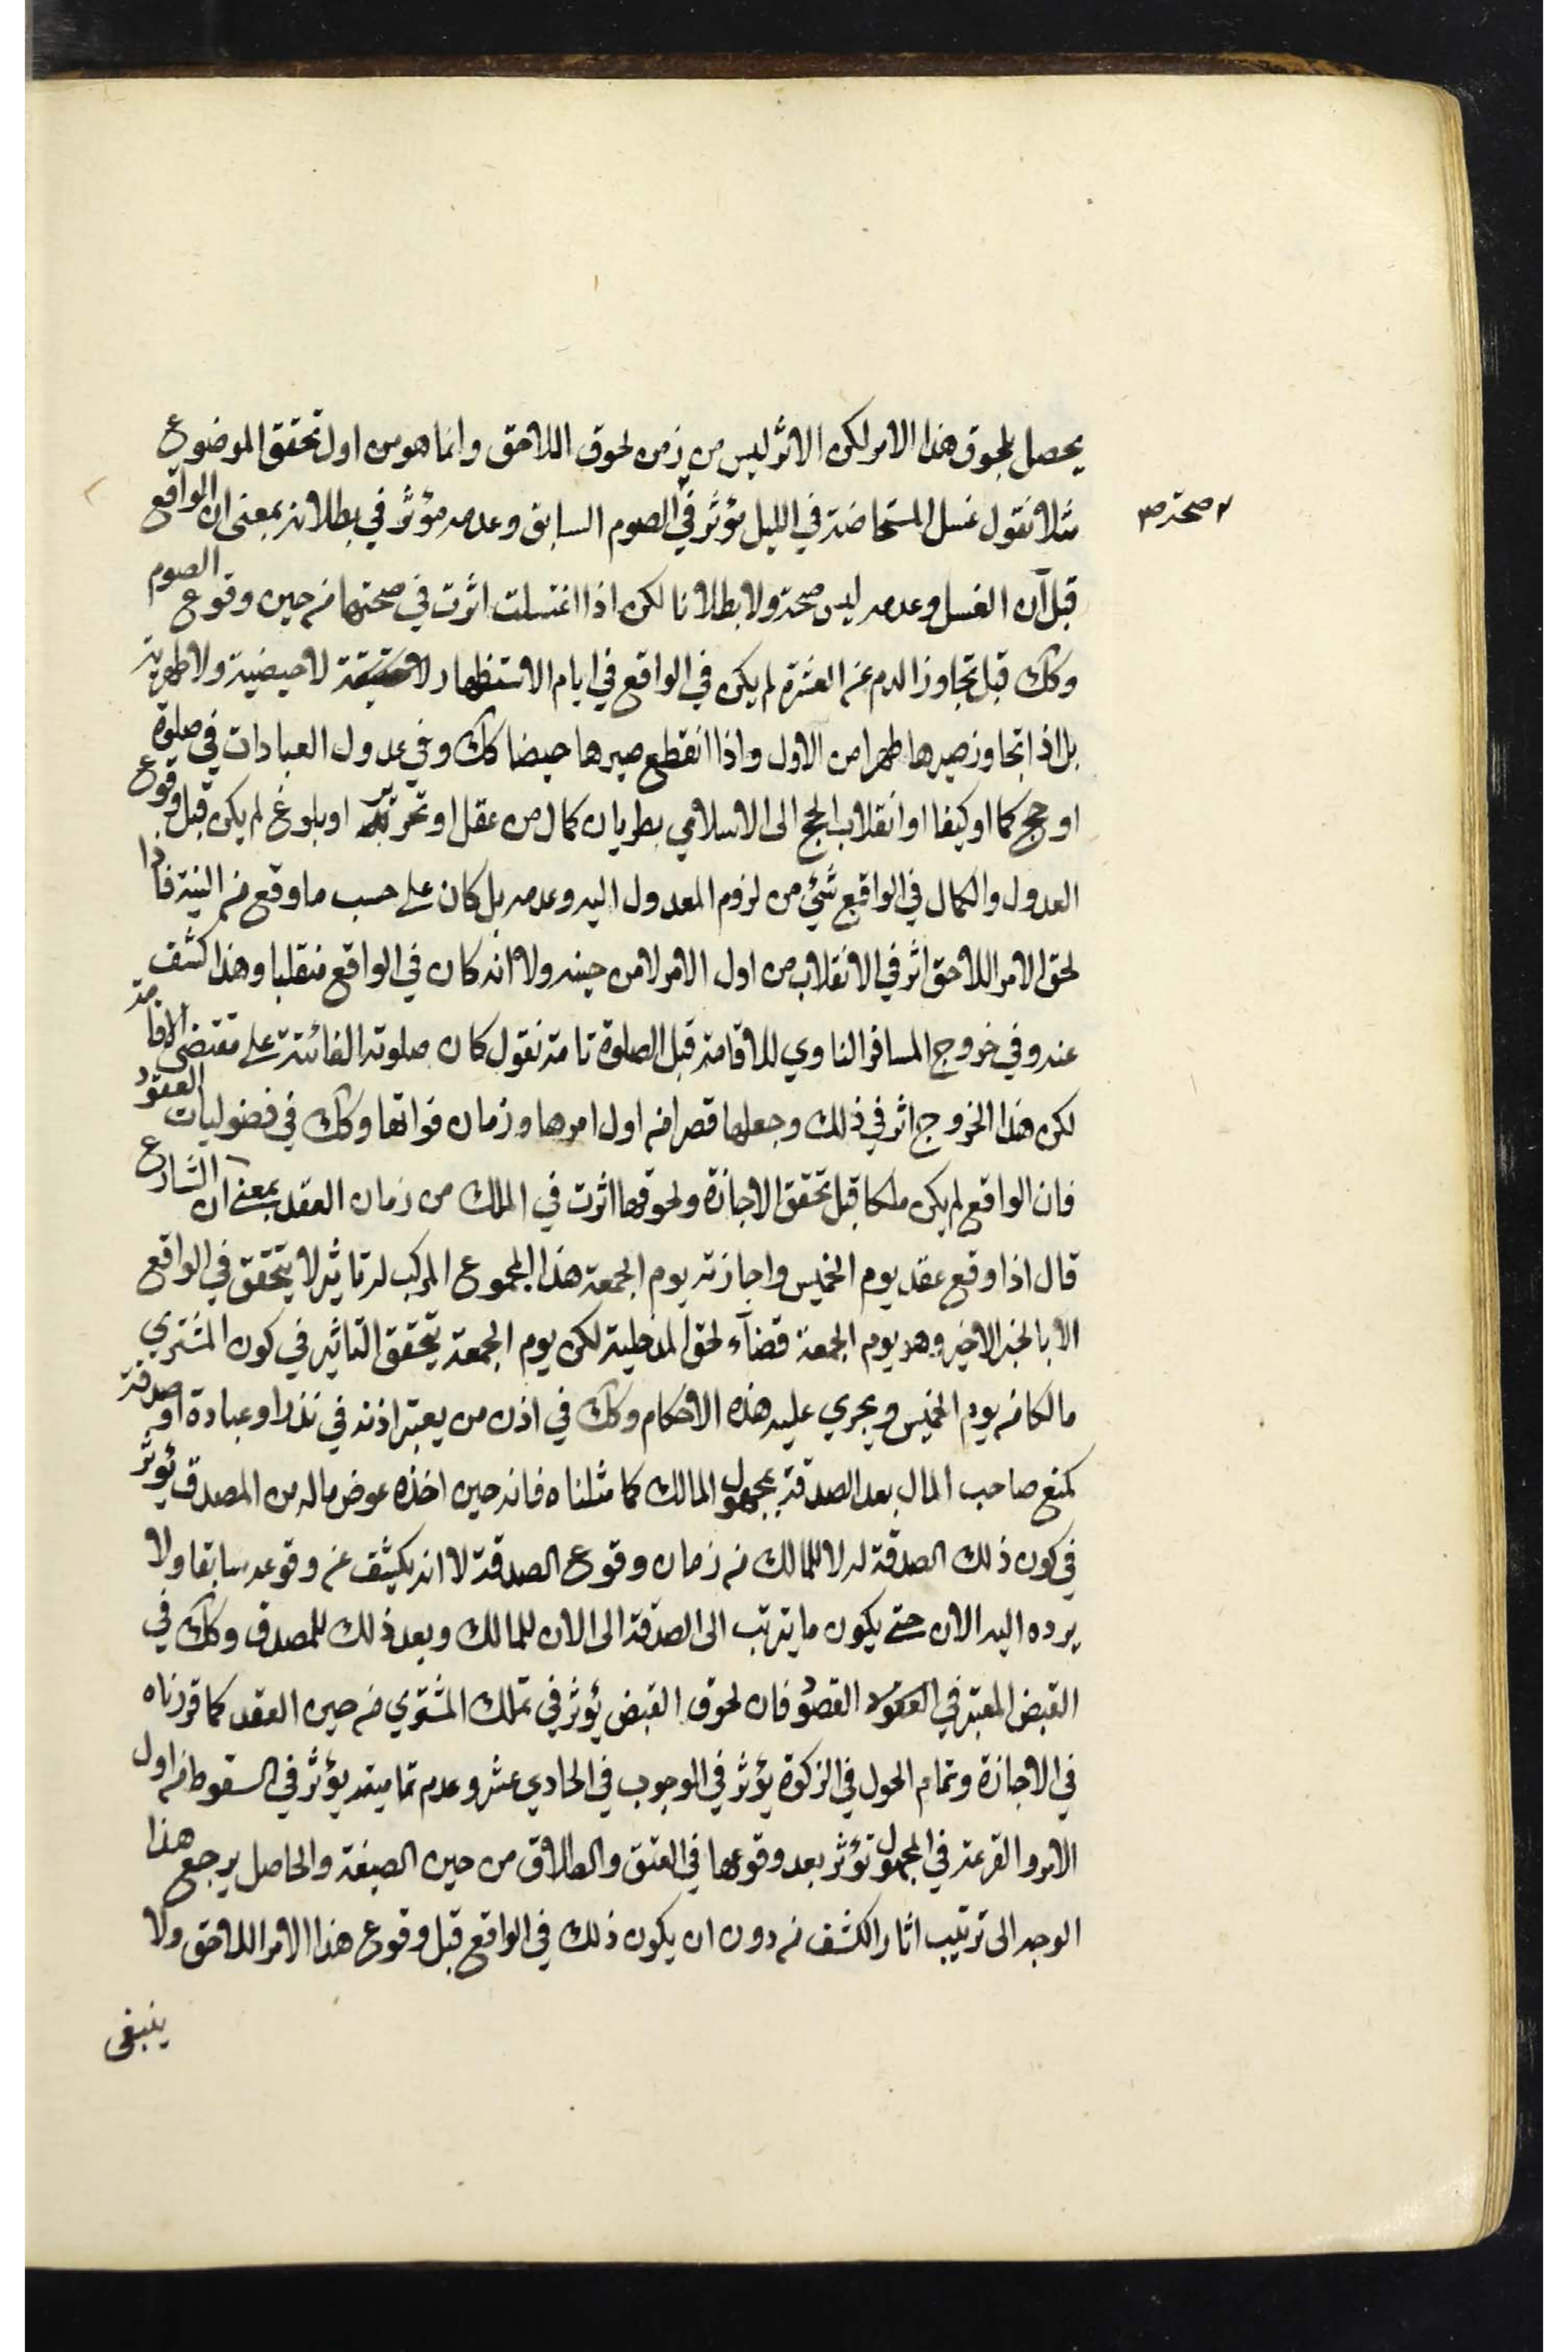 يحصل بلحوق هذا الامر لكن الاثر ليس من زمن لحوق اللاحق وانما هو من اول تحقق الموضوع
مثلا نقول غسل المستحاضة في الليل مؤثر في الصوم السابق وعدمه مؤثر في بطلانه بمعنى ان الواقع
صحة صح
قبل آن الغسل وعدمه ليس صحة ولا بطلانا لكن اذا اغتسلت اثرت في صحتها من حين وقوع الصوم
وكك قبل تجاوز الدم عن العشرة لم يكن في الواقع في ايام الاستظهار لا حيضية ولا طهرية
بل اذا تجاوز صيرها طهرا من الاول واذا انقطع صيرها حيضا كك وفي عدول العبادات في صلوة
او حج كما او كيفا او انقلاب الحج الى الاسلامي بطريان كمال من عقل او تحرير او بلوغ لم يكن قبل وقوع
العدول والكمال في الواقع شئ من لزوم المعدول اليه وعدمه بل كان على حسب ما وقع من النية فاذا
لحق الامر اللاحق اثر في الانقلاب من اول الامر لا من حينه ولا انه كان في الواقع منقلبا وهذا كشف
عنه وفي خروج المسافر الناوي للاقامة قبل الصلوة تامة نقول كان صلوته الفائتة على مقتضى الاقامة
لكن هذا الخروج اثر في ذلك وجعلها قصرا من اول امرها وزمان فواتها وكك في فضوليات العقود
فان الواقع لم يكن ملكا قبل تحقق الاجازة ولحوقها اثرت في الملك من زمان العقد بمعنى ان الشارع
قال اذا وقع عقد يوم الخميس واجازته يوم الجمعة هذا المجموع المركب له تاثير لا يتحقق في الواقع
الا بالجزء الاخير وهو يوم الجمعة قضآء لحق المدخلية لكن يوم الجمعة يتحقق التاثير في كون المشتري
مالكا من يوم الخميس ويجري عليه هذه الاحكام وكك في اذن من يعتبر اذنه في نذر او عبادة او صدقة
كمنع صاحب المال بعد الصدقة بمجهول المالك كما مثلناه فانه حين اخذه عوض ماله من المصدق يؤثر
في كون ذلك الصدقة له لا للمالك من زمان وقوع الصدقة لا انه يكشف عن وقوعه سابقا ولا
يرده اليه الان حتى يكون ما يترتب الى الصدقة الى الان للمالك وبعد ذلك للمصدق وكك في
القبض المعتبر في العقود فان لحوق القبض يؤثر في تملك المشتري من حين العقد كما قررناه
في الاجازة وتمام الحول في الزكوة يؤثر في الوجوب في الحادي عشر وعدم تماميته يؤثر في السقوط من اول
الامر والقرعة في المجهول تؤثر بعد وقوعها في العتق والطلاق من حين الصيغة والحاصل يرجع هذا
الوجه الى ترتيب اثار الكشف من دون ان يكون ذلك في الواقع قبل وقوع هذا الامر اللاحق ولا
ينبغي